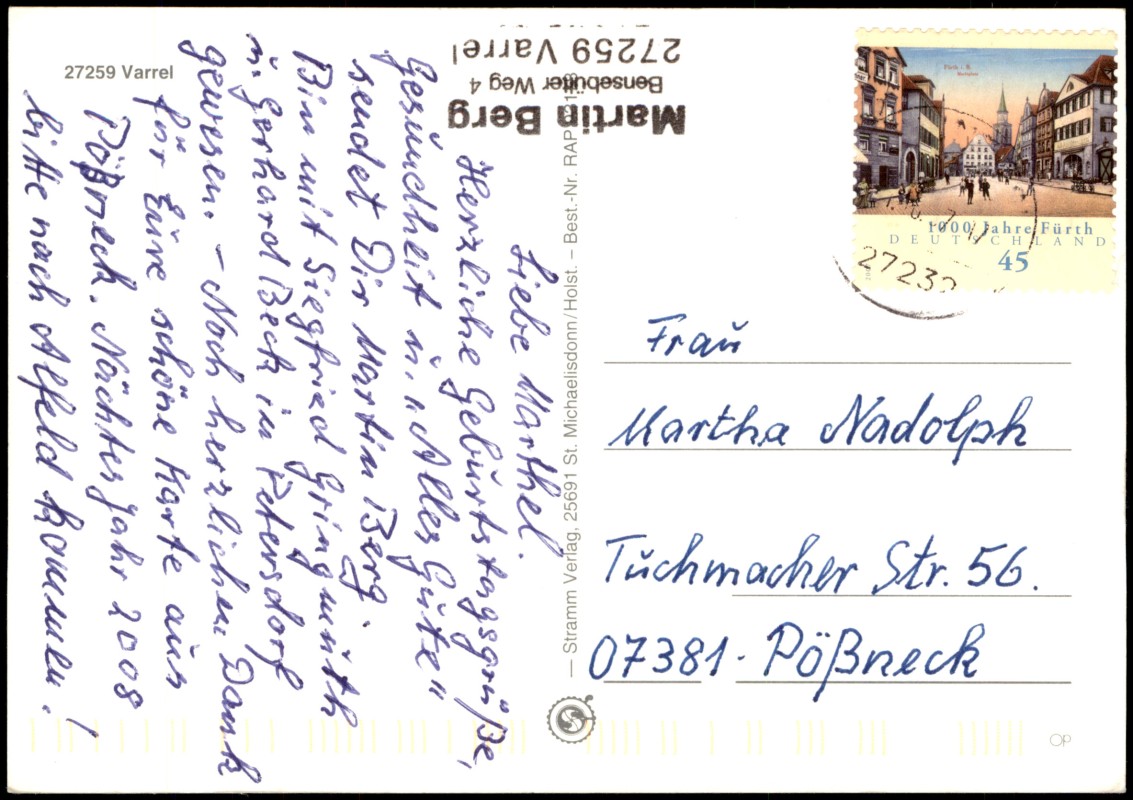 27259 Varrel
Martin Berg
Bensebütter Weg 4
27259 Varrel
Liebe Marthel.
Herzliche Geburtstagsgrüße,
Gesundheit u. „Alles Gute"
sendet Dir Martin Berg.
Bin mit Siegfried Gringmuth
u. Gerhard Beck in Petersdorf
gewesen. – Noch herzlichen Dank
für Eure schöne Karte aus
Pößneck. Nächtes Jahr 2008
bitte nach Alfeld kommen!
— Stramm Verlag, 25691 St. Michaelisdonn/Holst. – Best.-Nr. RAP
Fürth i. B.
Marktplatz
1000 Jahre Fürth
DEUTSCHLAND
45
27232
Frau
Martha Nadolph
Tuchmacher Str. 56.
07381 · Pößneck
OP